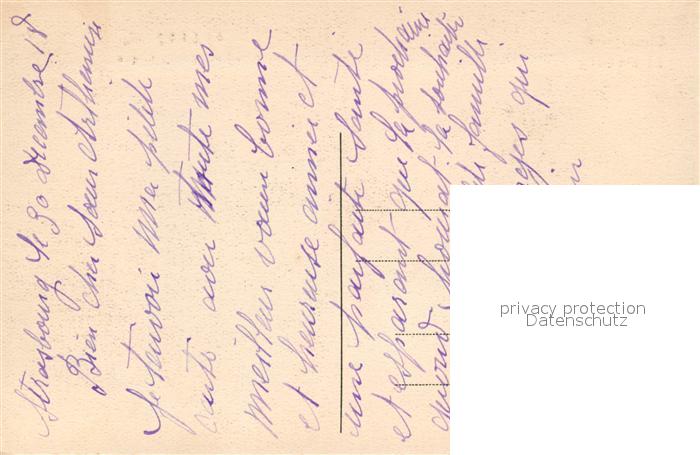 Strasbourg le 30 decembre 18
Bien cher sœur Arthemise
Je tenvoi ma petite
carte avec toute mes
meilleur vœux bonne
et heureuse année et
une parfaite santé
et esparant que la prochaine
nous la souhaite
famille
qui
privacy protection
Datenschutz